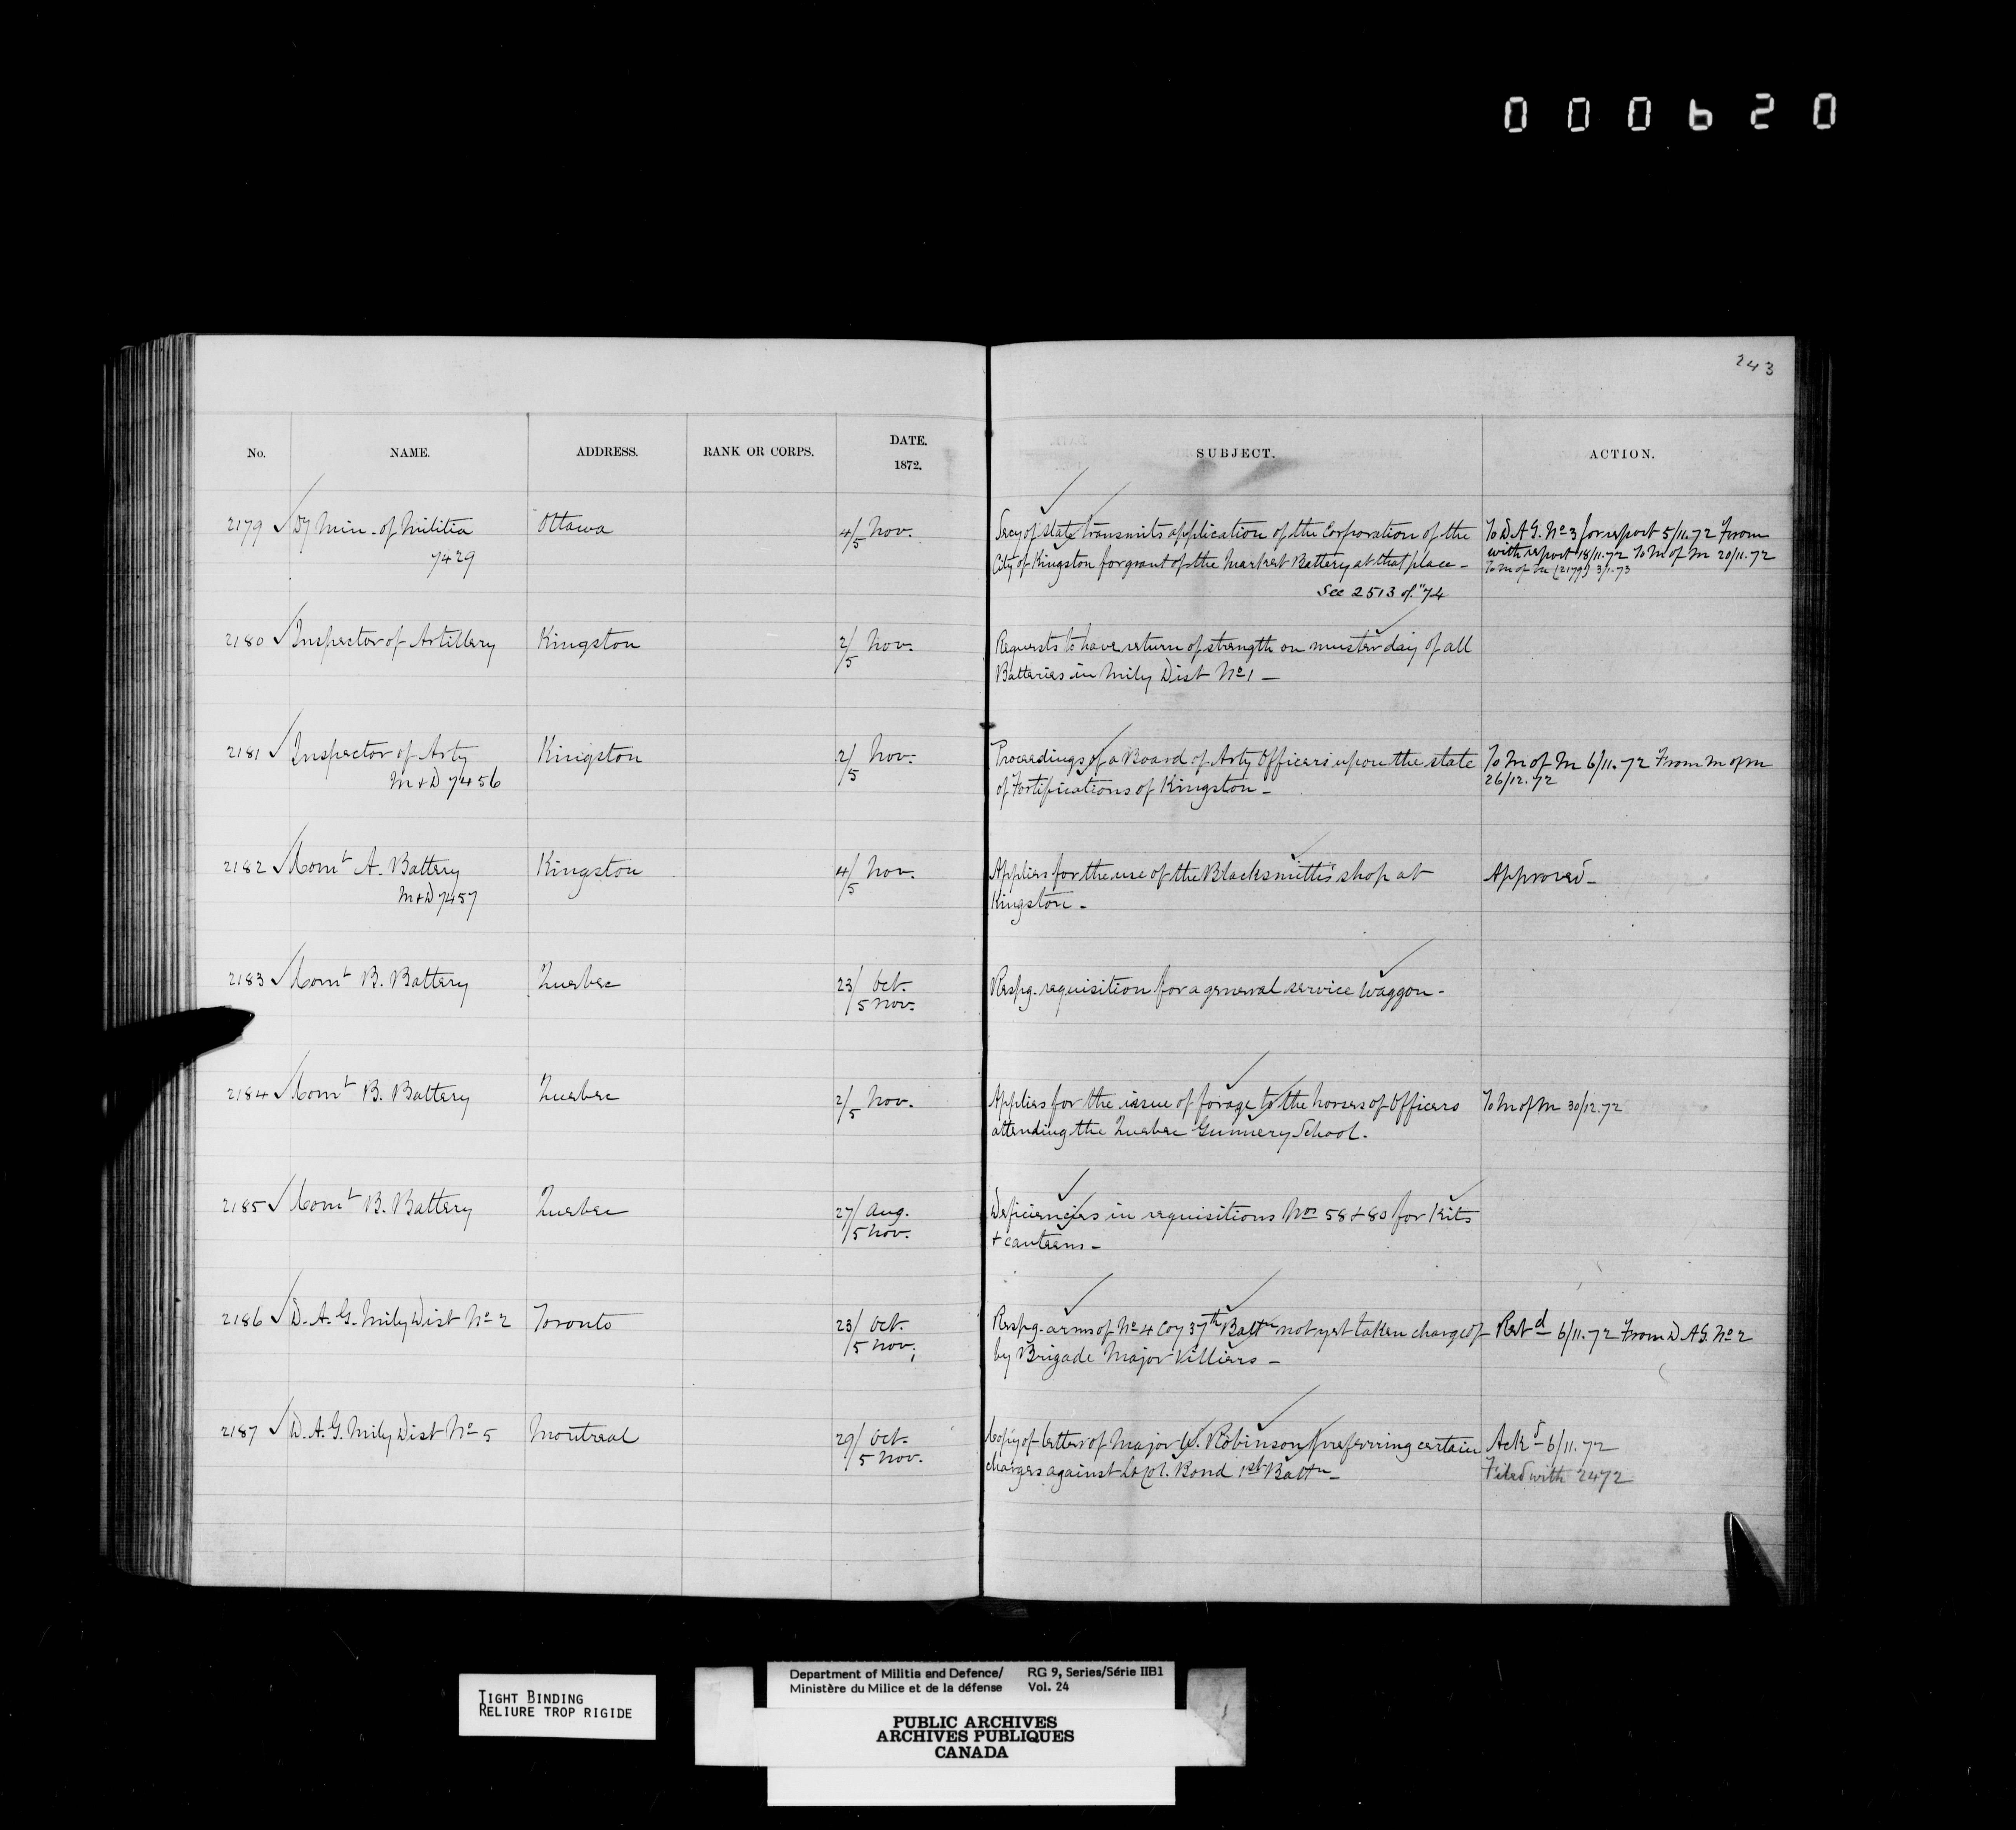 000620
243
No. NAME. ADDRESS. RANK OR CORPS. DATE. 1872. SUBJECT. ACTION.
2179 Dy Min. of Militia Ottawa 4/5 Nov. Secy of State transmits application of the Corporation of the To D.A.G. No 3 for report 5/11.72 From
7429 City of Kingston for grant of the Market Battery at that place - with report 18/11.72 To M of M 20/11.72
To M of M (2179) 3/1.73
See 2513 of "74
2180 Inspector of Artillery Kingston 2/5 Nov. Requests to have return of strength on muster day of all
Batteries in Mily Dist No 1 -
2181 Inspector of Arty Kingston 2/5 Nov. Proceedings of a Board of Arty Officers upon the state To M of M 6/11.72 From M of M
M & D 7456 of Fortifications of Kingston - 26/12.72
2182 Comt A. Battery Kingston 4/5 Nov. Applies for the use of the Blacksmith's shop at Approved -
M & D 7457 Kingston -
2183 Comt B. Battery Quebec 23/ Oct. Respg. requisition for a general service Waggon -
/5 Nov.
2184 Comt B. Battery Quebec 2/5 Nov. Applies for the issue of forage to the horses of Officers To M of M 30/12.72
attending the Quebec Gunnery School.
2185 Comt B. Battery Quebec 27/ Aug. Deficiencies in requisitions Nos 58 & 80 for Kits
/5 Nov. & canteens -
2186 D. A. G. Mily Dist No 2 Toronto 23/ Oct. Respg. arms of No 4 Coy 37th Battn not yet taken charge of Retd 6/11.72 From D.A.G. No 2
/5 Nov. by Brigade Major Villiers -
2187 D. A. G. Mily Dist No 5 Montreal 29/ Oct. Copy of letter of Major W. Robinson preferring certain Ackd 6/11.72
/5 Nov. charges against Lt Col. Bond 1st Battn - Filed with 2472
TIGHT BINDING
RELIURE TROP RIGIDE
Department of Militia and Defence/ RG 9, Series/Série IIB1
Ministère du Milice et de la défense Vol. 24
PUBLIC ARCHIVES
ARCHIVES PUBLIQUES
CANADA